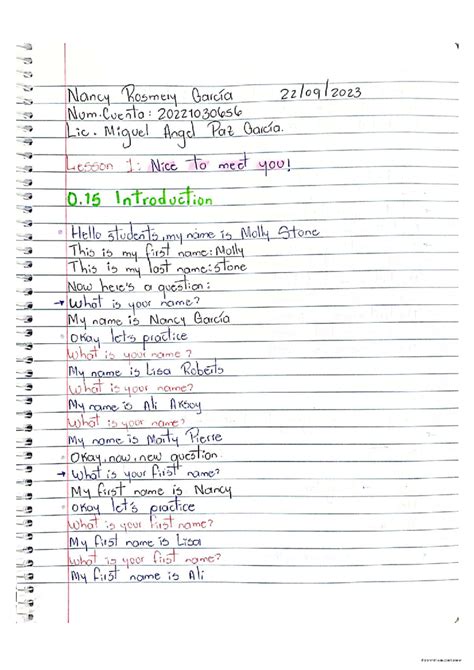 Nancy Rosmery García 22/09/2023
Num.Cuenta: 20221030656
Lic. Miguel Angel Paz García.
Lesson 1: Nice to meet you!
0.15 Introduction
Hello students, my name is Molly Stone
This is my first name: Molly
This is my last name: stone
Now here's a question:
→ What is your name?
My name is Nancy García
Okay let's practice
What is your name?
My name is Lisa Roberts
What is your name?
My name is Ali Aksoy
What is your name?
My name is Marty Pierre
Okay, now, new question.
→ What is your first name?
My first name is Nancy
Okay let's practice
What is your first name?
My first name is Lisa
What is your first name?
My first name is Ali